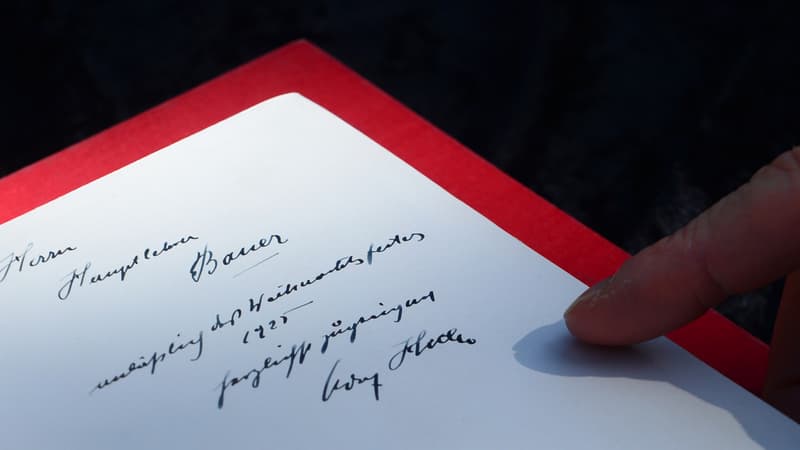 Herrn
Hauptlehrer
Bauer
anläßlich des Weihnachtsfestes
1925
herzlichst zugeeignet
Adolf Hitler